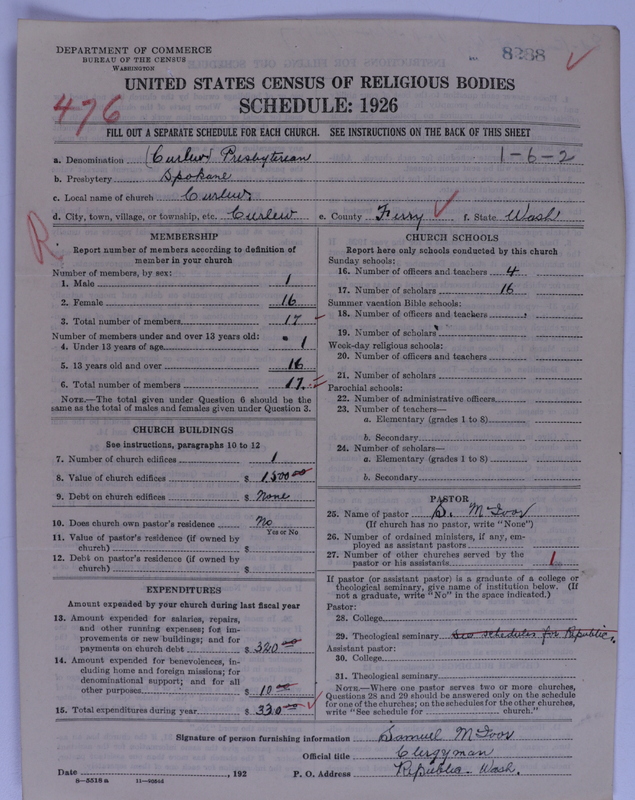 DEPARTMENT OF COMMERCE
BUREAU OF THE CENSUS
WASHINGTON
8288
UNITED STATES CENSUS OF RELIGIOUS BODIES
476
SCHEDULE: 1926
FILL OUT A SEPARATE SCHEDULE FOR EACH CHURCH. SEE INSTRUCTIONS ON THE BACK OF THIS SHEET
a. Denomination (Curlew) Presbyterian 1-6-2
b. Presbytery Spokane
c. Local name of church Curlew
d. City, town, village, or township, etc. Curlew e. County Ferry f. State Wash
R
MEMBERSHIP
Report number of members according to definition of
member in your church
Number of members, by sex:
1. Male 1
2. Female 16
3. Total number of members 17
Number of members under and over 13 years old:
4. Under 13 years of age 1
5. 13 years old and over 16
6. Total number of members 17
NOTE.—The total given under Question 6 should be the
same as the total of males and females given under Question 3.
CHURCH BUILDINGS
See instructions, paragraphs 10 to 12
7. Number of church edifices 1
8. Value of church edifices $ 1500.00
9. Debt on church edifices $ None
10. Does church own pastor's residence No
Yes or No
11. Value of pastor's residence (if owned by
church) $
12. Debt on pastor's residence (if owned by
church) $
EXPENDITURES
Amount expended by your church during last fiscal year
13. Amount expended for salaries, repairs,
and other running expenses; for im-
provements or new buildings; and for
payments on church debt $ 320.00
14. Amount expended for benevolences, in-
cluding home and foreign missions; for
denominational support; and for all
other purposes $ 10.00
15. Total expenditures during year $ 330.00
CHURCH SCHOOLS
Report here only schools conducted by this church
Sunday schools:
16. Number of officers and teachers 4
17. Number of scholars 16
Summer vacation Bible schools:
18. Number of officers and teachers
19. Number of scholars
Week-day religious schools:
20. Number of officers and teachers
21. Number of scholars
Parochial schools:
22. Number of administrative officers
23. Number of teachers—
a. Elementary (grades 1 to 8)
b. Secondary
24. Number of scholars—
a. Elementary (grades 1 to 8)
b. Secondary
PASTOR
25. Name of pastor S. McIvor
(If church has no pastor, write "None")
26. Number of ordained ministers, if any, em-
ployed as assistant pastors
27. Number of other churches served by the
pastor or his assistants 1
If pastor (or assistant pastor) is a graduate of a college or
theological seminary, give name of institution below. (If
not a graduate, write "No" in the space indicated.)
Pastor:
28. College
29. Theological seminary See schedules for Republic.
Assistant pastor:
30. College
31. Theological seminary
NOTE.—Where one pastor serves two or more churches,
Questions 28 and 29 should be answered only on the schedule
for one of the churches; on the schedules for the other churches,
write "See schedule for church."
Signature of person furnishing information Samuel McIvor
Official title Clergyman
Date , 192 P. O. Address Republic Wash.
8—5518 a